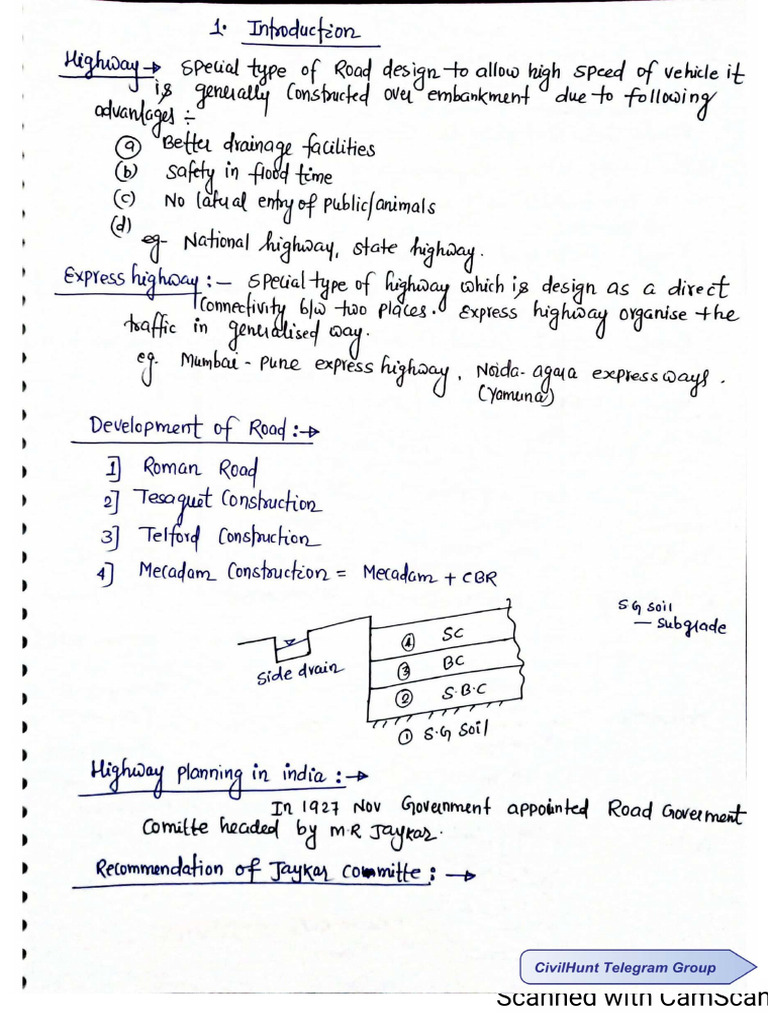 1. Introduction
Highway → special type of Road design to allow high speed of vehicle it
is generally constructed over embankment due to following
advantages ÷
(a) Better drainage facilities
(b) safety in flood time
(c) No latual entry of public/animals
(d)
eg- National highway, state highway.
Express highway :- special type of highway which is design as a direct
connectivity b/w two places. Express highway organise the
traffic in generalised way.
eg. Mumbai - Pune express highway, Noida- agara express ways.
(Yamuna)
Development of Road :→
1] Roman Road
2] Tesaguet Construction
3] Telford Construction
4] Mecadam Construction = Mecadam + CBR
SG soil
— subglade
④ SC
side drain
③ BC
② S.B.C
① S.G Soil
Highway planning in india :→
In 1927 Nov Government appointed Road Goverment
Comitte headed by M.R Jaykar.
Recommendation of Jaykar committe : →
CivilHunt Telegram Group
Scanned with CamScan